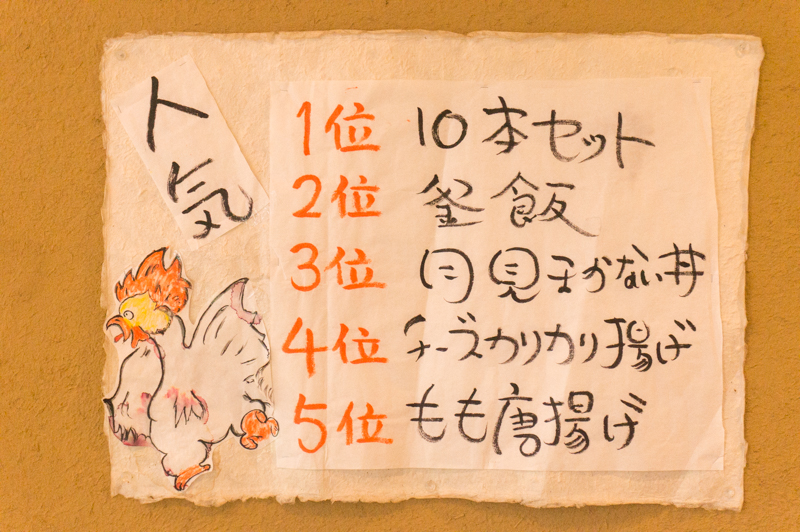 人気
1位 10本セット
2位 釜飯
3位 月見まかない丼
4位 チーズカリカリ揚げ
5位 もも唐揚げ